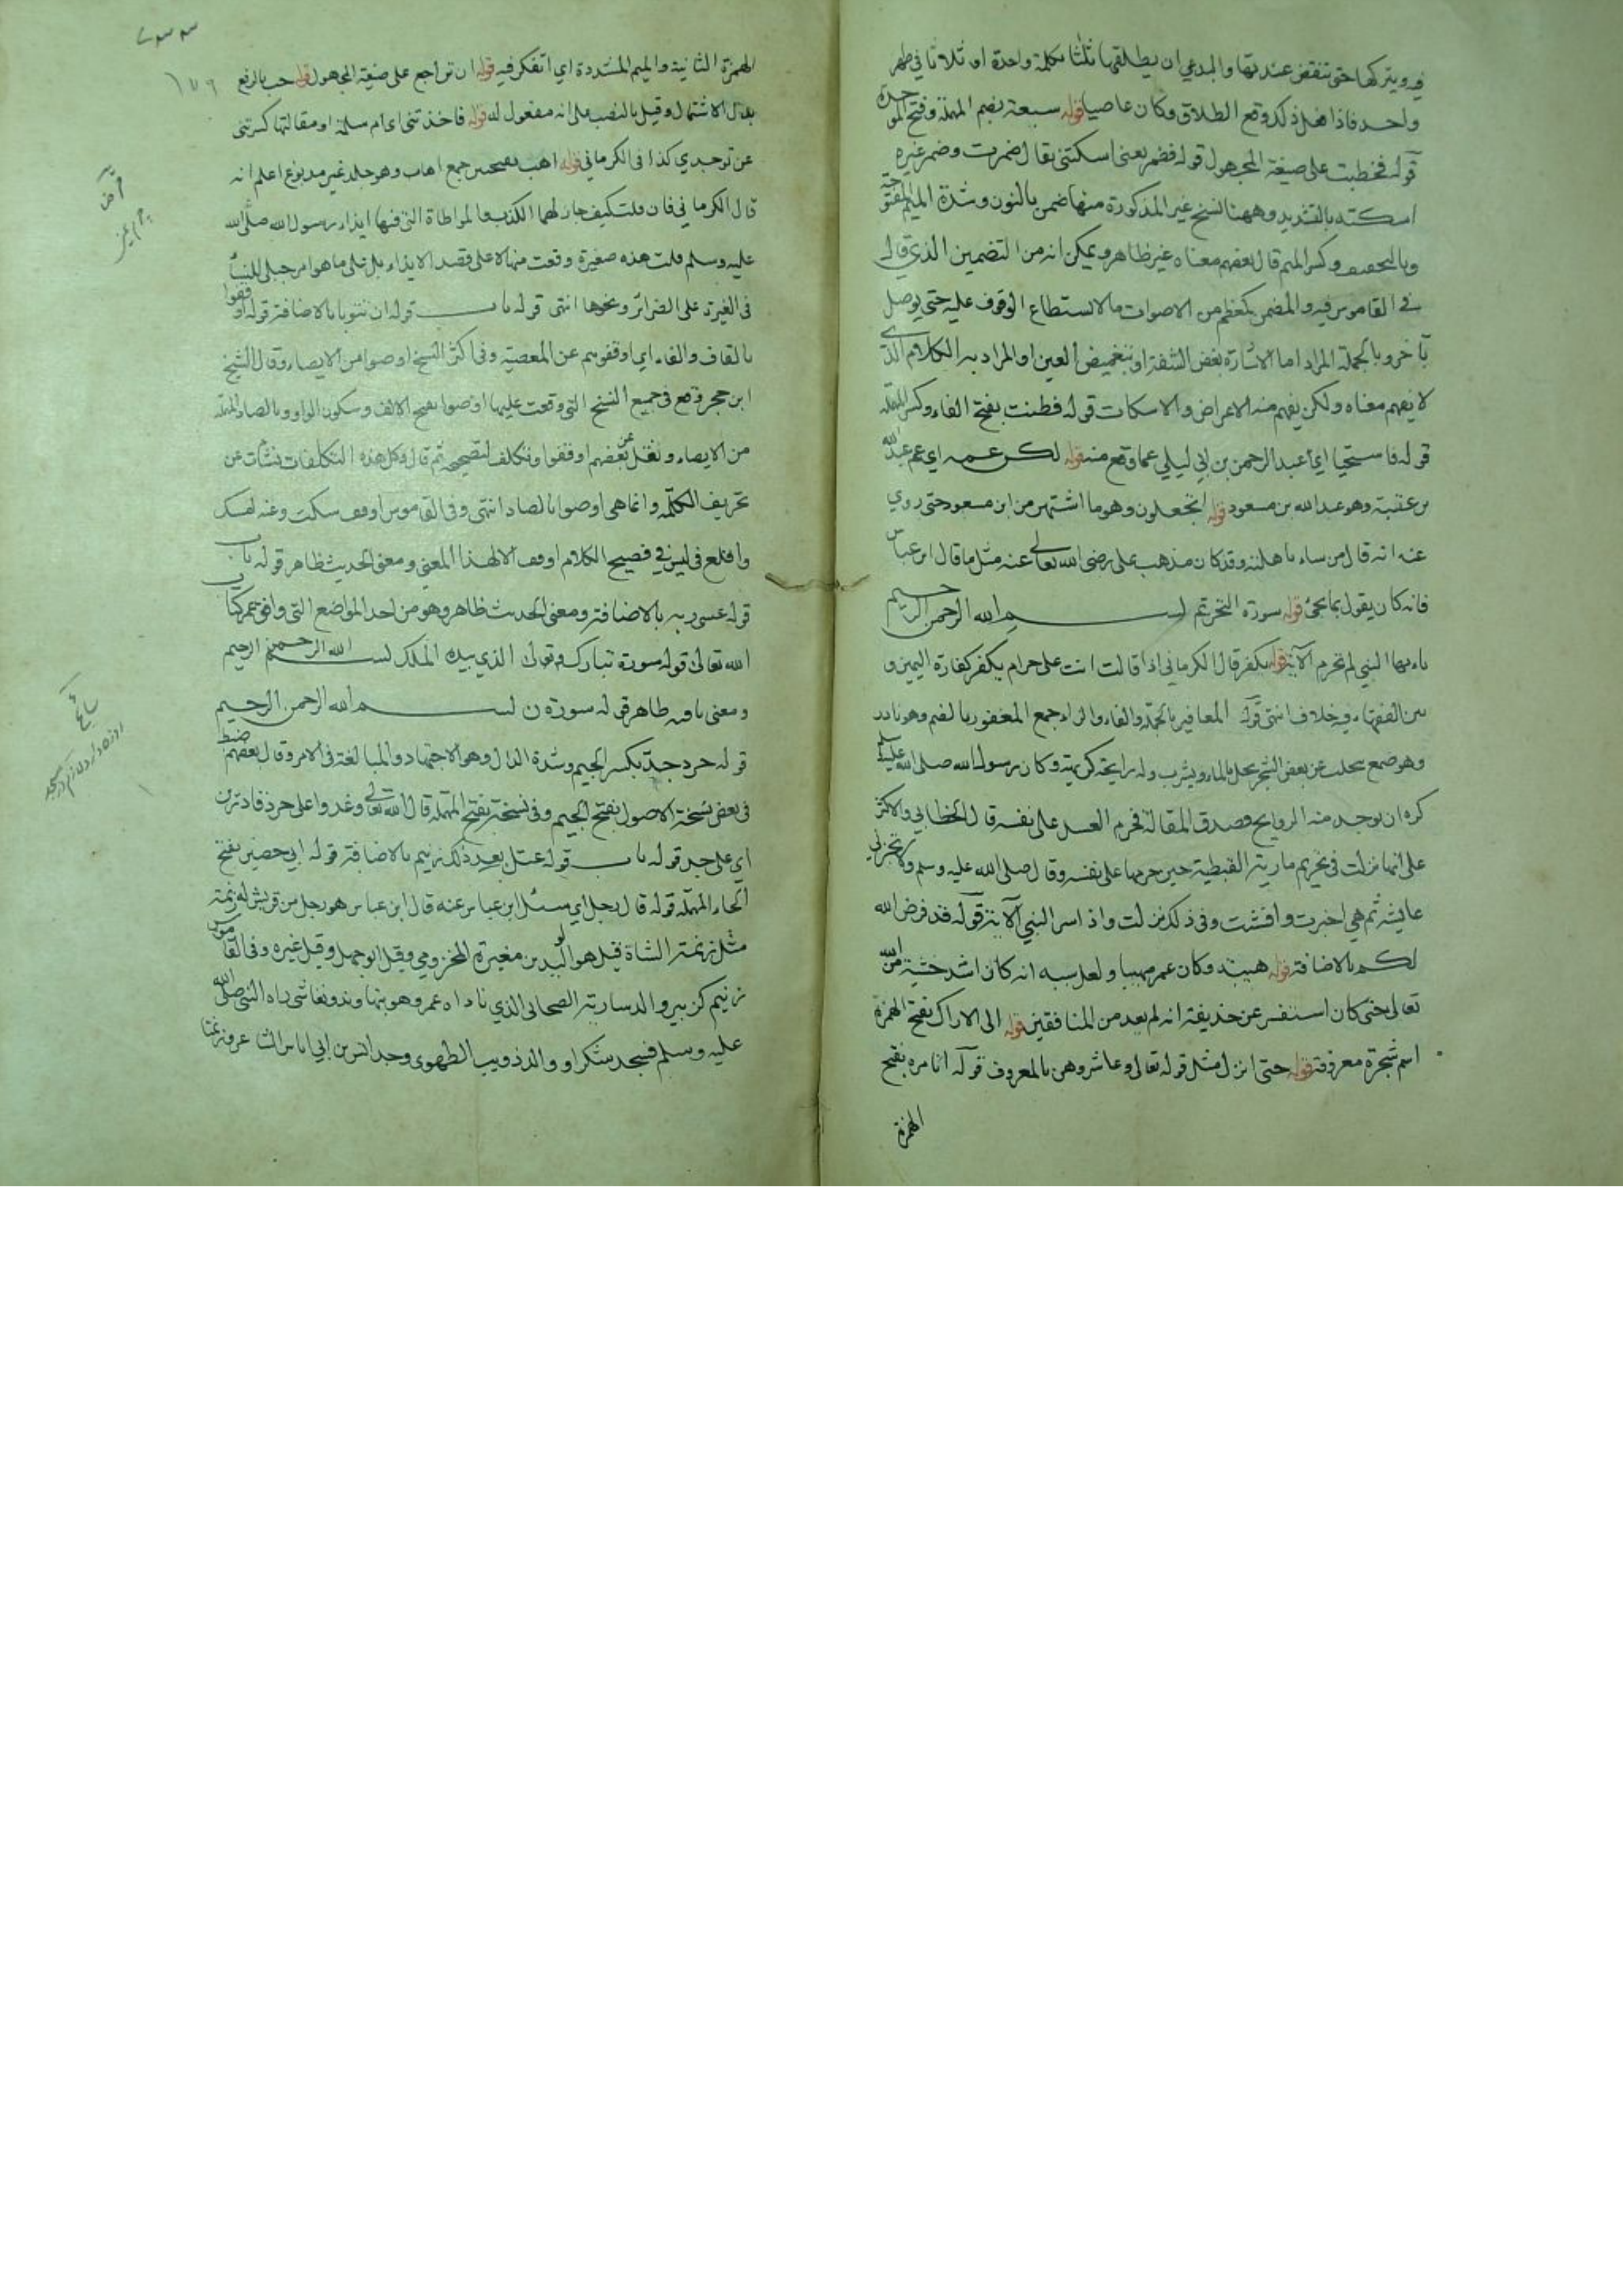 فيه ويتركها حتى تنقضي عدتها والبدعي ان يطلقها ثلثا بكلمة واحدة او ثلاثا في طهر
واحد فاذا فعل ذلك وقع الطلاق وكان عاصيا قوله سبيعة بضم المهملة وفتح الموحدة
قوله فخطبت على صيغة المجهول قوله فضمر يعني اسكتني يقال ضمرت وضمر غيره
اسكته بالتشديد وههنا نسخ غير المذكورة منها ضمن بالنون وشدة الميم المفتوحة
وبالتخفيف وكسر الميم قال بعضهم معناه غير ظاهر ويمكن انه من التضمين الذي قال
في القاموس فيه والمضمن كمعظم من الاصوات ما لا يستطاع الوقوف عليه حتى يوصل
بآخر وبالجملة المراد اما الاشارة بغض الشفة او بتغميض العين او المراد به الكلام الذي
لا يفهم معناه ولكن يفهم منه الاعراض والاسكات قوله فطنت بفتح الفاء وكسر المهملة
قوله فاستحيا اي عبد الرحمن بن ابي ليلي عما وقع منه قوله لكن عمه اي عم عبد الله
بن عقبة وهو عبد الله بن مسعود قوله اتجعلون وهو ما اشتهر من ابن مسعود حتى روي
عنه انه قال من شاء باهلته وقد كان مذهب على رضى الله تعالى عنه مثل ما قال ابن عباس
فانه كان يقول بما يجئ قوله سورة التحريم بسم الله الرحمن الرحيم
ياءيها النبي لم تحرم الآية قوله يكفر قال الكرماني اذا قالت انت على حرام يكفر كفارة اليمين و
بين الفقهاء فيه خلاف انتهى قوله المغافير بالمعجمة والفاء والراء جمع المغفور بالضم وهو نادر
وهو صمغ يتحلب عن بعض الشجر يحل بالماء ويشرب وله رايحة كريهة وكان رسول الله صلى الله عليه وسلم
كره ان يوجد منه الروايح فصدق المقالة فحرم العسل على نفسه قال الخطابي والاكثر
على انها نزلت في تحريم مارية القبطية حين حرمها على نفسه وقال صلى الله عليه وسلم ولا تخبري
عايشة ثم هي اخبرت وافشت وفي ذلك نزلت واذ اسر النبي الآية قوله قد فرض الله
لكم بالاضافة قوله هيبته وكان عمر مهيبا ولعل سببه انه كان اشد خشية من الله
تعالى حتى كان استفسر عن حذيفة انه لم يعد من المنافقين قوله الى الاراك بفتح الهمزة
اسم شجرة معروفة قوله حتى انزل مثل قوله تعالى وعاشروهن بالمعروف قوله اتامره بفتح
الهمزة
١٧٦
الهمزة الثانية والميم المشددة اي اتفكر فيه قوله ان تراجع على صيغة المجهول قوله حب بالرفع
بدل الاشتمال وقيل بالنصب على انه مفعول له قوله فاخذتني اي ام سلمة او مقالتها كسرتني
عن توجدي كذا في الكرماني قوله اهب بفتحتين جمع اهاب وهو جلد غير مدبوغ اعلم انه
قال الكرماني فان قلت كيف جاز لهما الكذب والمواطاة التي فيها ايذاء رسول الله صلى الله
عليه وسلم قلت هذه صغيرة وقعت منهما لا على قصد الايذاء بل على ما هو امر جبلي للنساء
في الغيرة على الضرائر ونحوها انتهى قوله باب قوله ان تتوبا بالاضافة قوله اوقفوا
بالقاف والفاء اي اوقفوهم عن المعصية وفي اكثر النسخ اوصوا من الايصاء وقال الشيخ
ابن حجر وقع في جميع النسخ التي وقعت عليها اوصوا بفتح الالف وسكون الواو وبالصاد المهملة
من الايصاء ونقل عن بعضهم اوقفوا وتكلف لتصحيحه ثم قال وكل هذه التكلفات نشأت عن
تحريف الكلمة وانما هي اوصوا بالصاد انتهى وفي القاموس اوقف سكت وعنه امسك
واقلع في ليس في فصيح الكلام اوقف الا لهذا المعنى ومعنى الحديث ظاهر قوله باب
قوله عسى ربه بالاضافة ومعنى الحديث ظاهر وهو من احد المواضع التي وافق عمر كتاب
الله تعالى قوله سورة تبارك وتعالى الذي بيده الملك بسم الله الرحمن الرحيم
ومعنى ما فيه ظاهر قوله سورة ن بسم الله الرحمن الرحيم
قوله حرد جد بكسر الجيم وشدة الدال وهو الاجتهاد والمبالغة في الامر وقال بعضهم ضبط
في بعض نسخة الاصول بفتح الجيم وفي نسخة بفتح المهملة قال الله تعالى وغدوا على حرد قادرين
اي على جد قوله باب قوله عتل بعد ذلك زنيم بالاضافة قوله ابي حصين بفتح
الحاء المهملة قوله قال رجل اي سئل ابن عباس عنه قال ابن عباس هو رجل من قريش له زنمة
مثل زنمة الشاة قيل هو الوليد بن مغيرة المخزومي وقيل ابو جهل وقيل غيره وفي القاموس
زنيم كزبير والد سارية الصحابي الذي ناداه عمر وهو بنهاوند ونغاشي راه النبي صلى الله
عليه وسلم فسجد شكرا و والد ذويب الطهوي وجد انس بن ابي اياس الشاعر